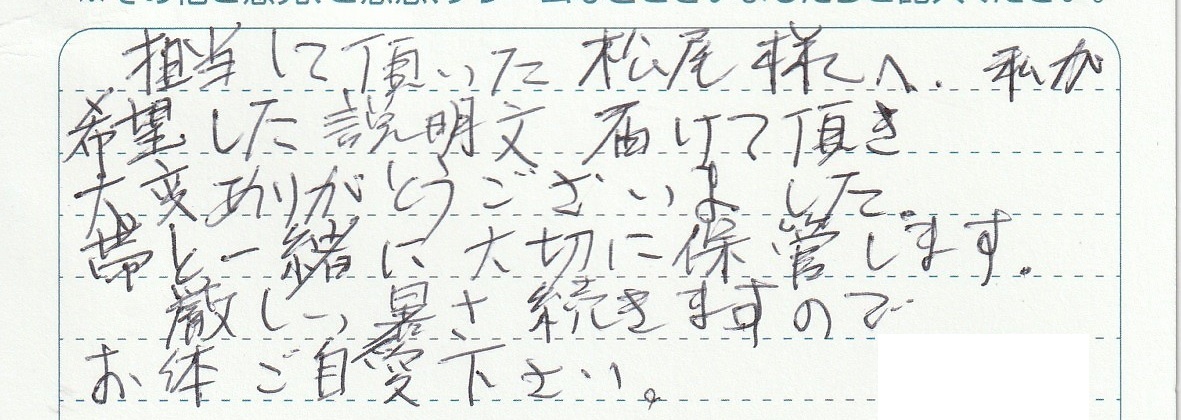 担当して頂いた松尾様へ、私が
希望した説明文届けて頂き
大変ありがとうございました。
帯と一緒に大切に保管します。
厳しい暑さ続きますので
お体ご自愛下さい。